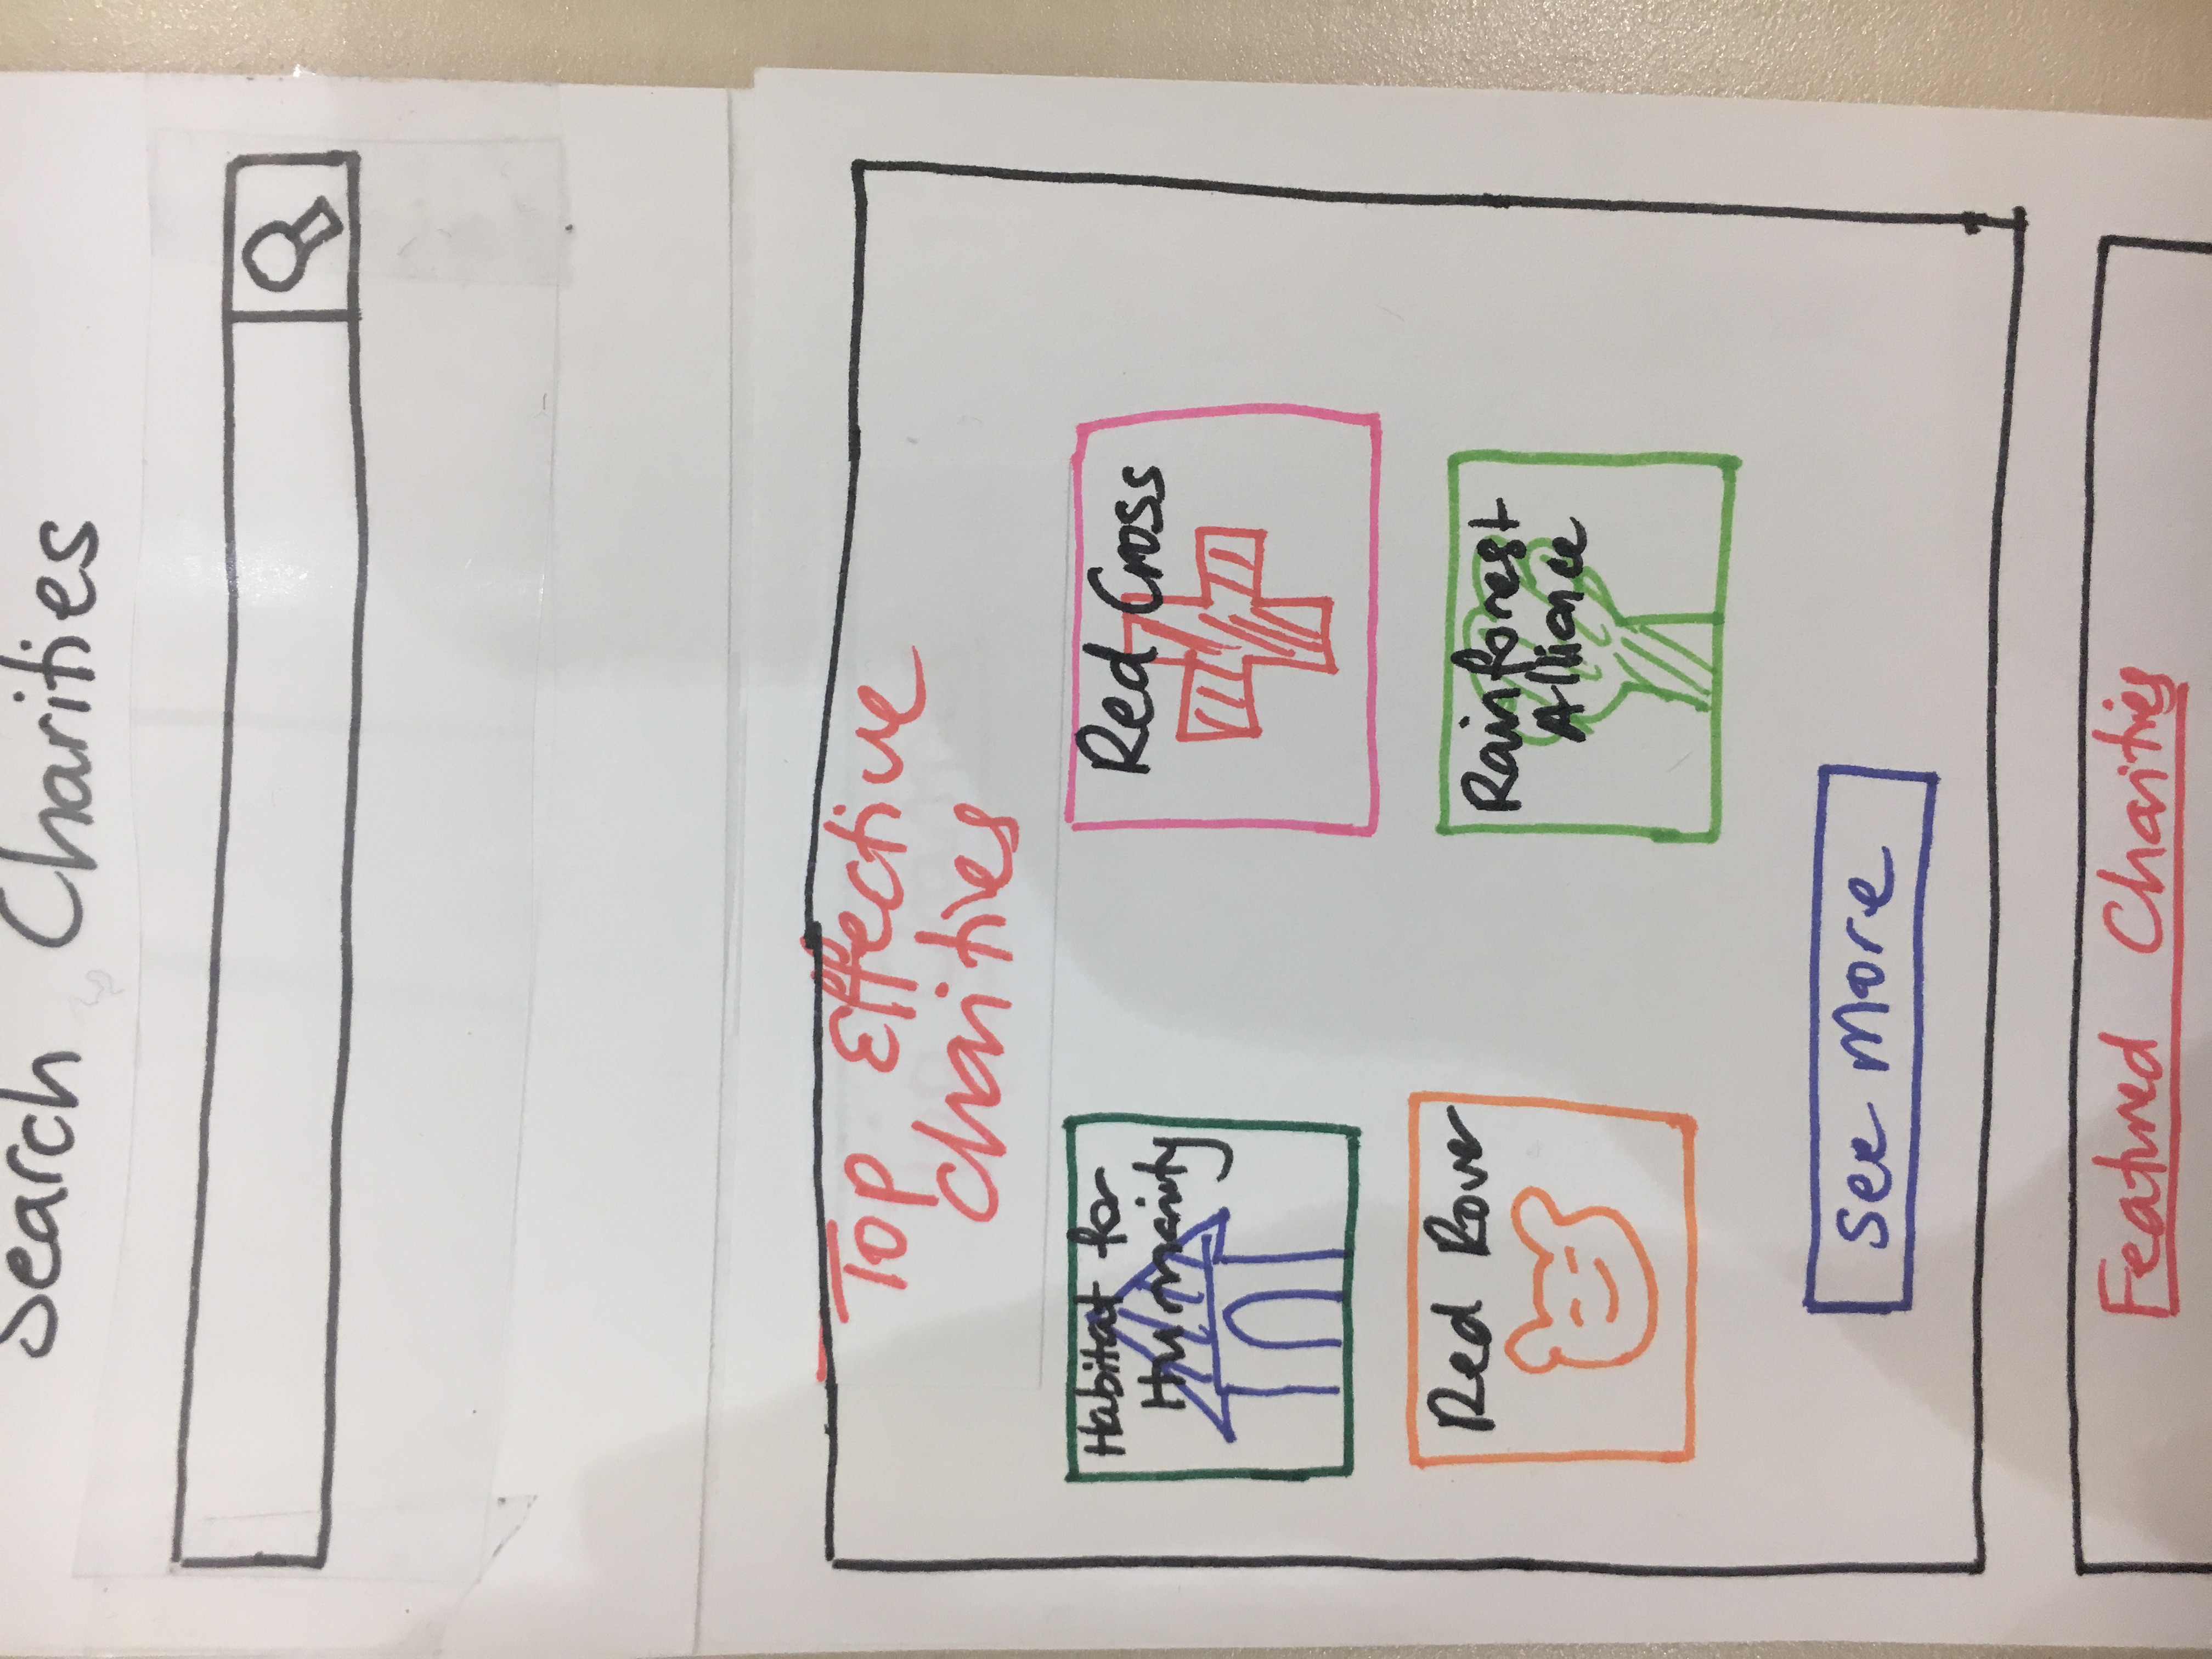 Search Charities
Top Effective
Chaities
Habitat for
Humanity
Red Cross
Red Rover
Rainforest
Alliance
See More
Featured Charities